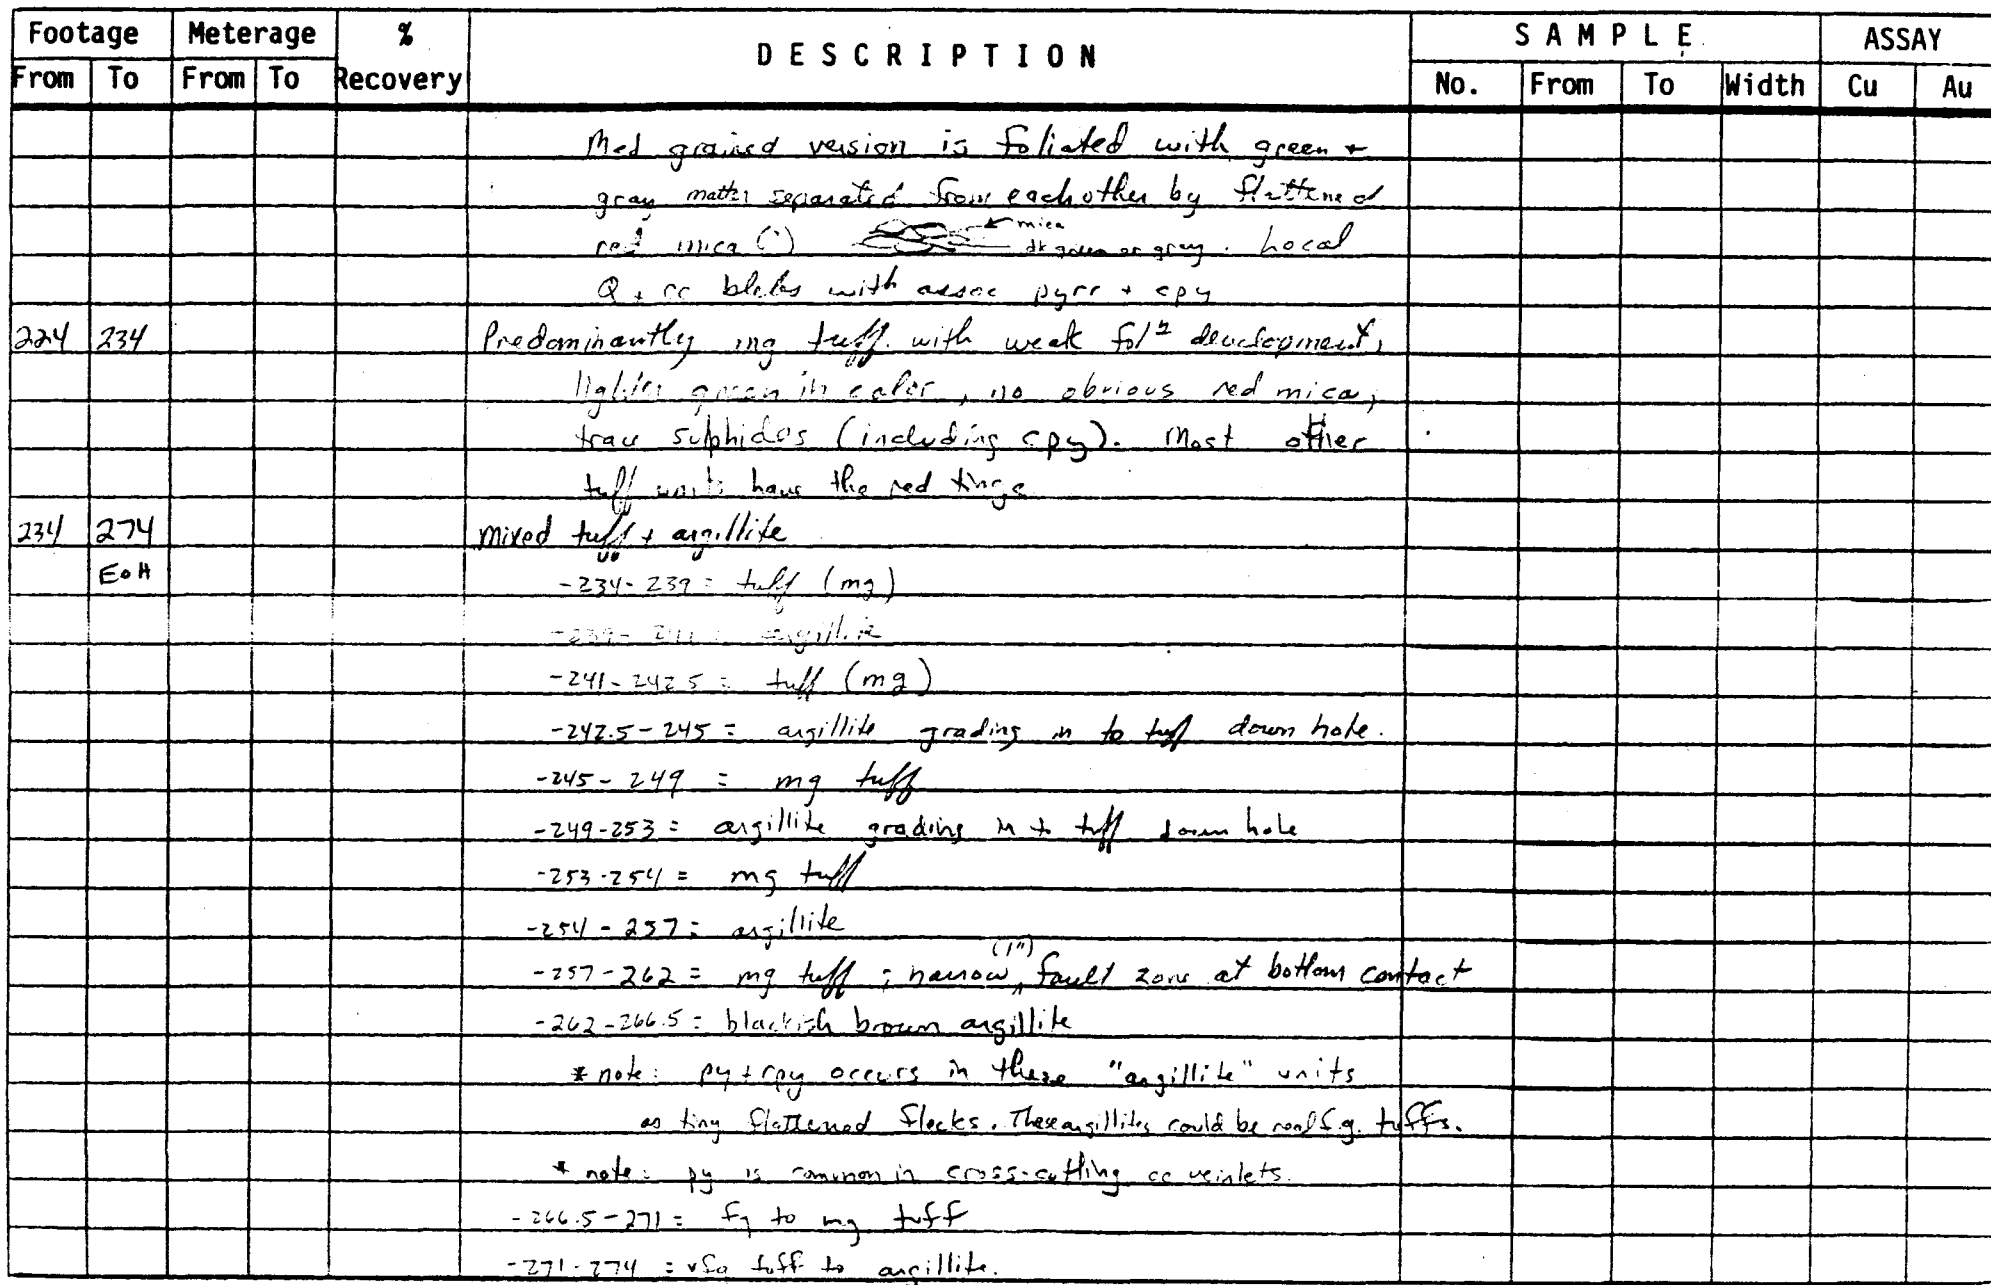 Footage Meterage % DESCRIPTION SAMPLE ASSAY
From To From To Recovery No. From To Width Cu Au
Med grained version is foliated with green +
gray matter separated from eachother by flattened
red mica (?) mica
dk green or gray. Local
Q + cc blebs with assoc pyrr + cpy
224 234 Predominantly mg tuff. with weak fol⁠ⁿ development,
lighter green in color, no obvious red mica,
trace sulphides (including cpy). Most other
tuff units have the red tinge
234 274 mixed tuff + argillite
EOH -234-239 = tuff (mg)
-239-241 = argillite
-241-242.5 = tuff (mg)
-242.5-245 = argillite grading in to tuff down hole.
-245-249 = mg tuff
-249-253 = argillite grading in to tuff down hole
-253-254 = mg tuff
-254-257 = argillite
-257-262 = mg tuff ; narrow (1") fault zone at bottom contact
-262-266.5 = blackish brown argillite
* note: py + cpy occurs in these "argillite" units
as tiny flattened flecks. These argillites could be real f.g. tuffs.
* note: py is common in cross-cutting cc veinlets.
-266.5-271 = fg to mg tuff
-271-274 = vfg tuff to argillite.